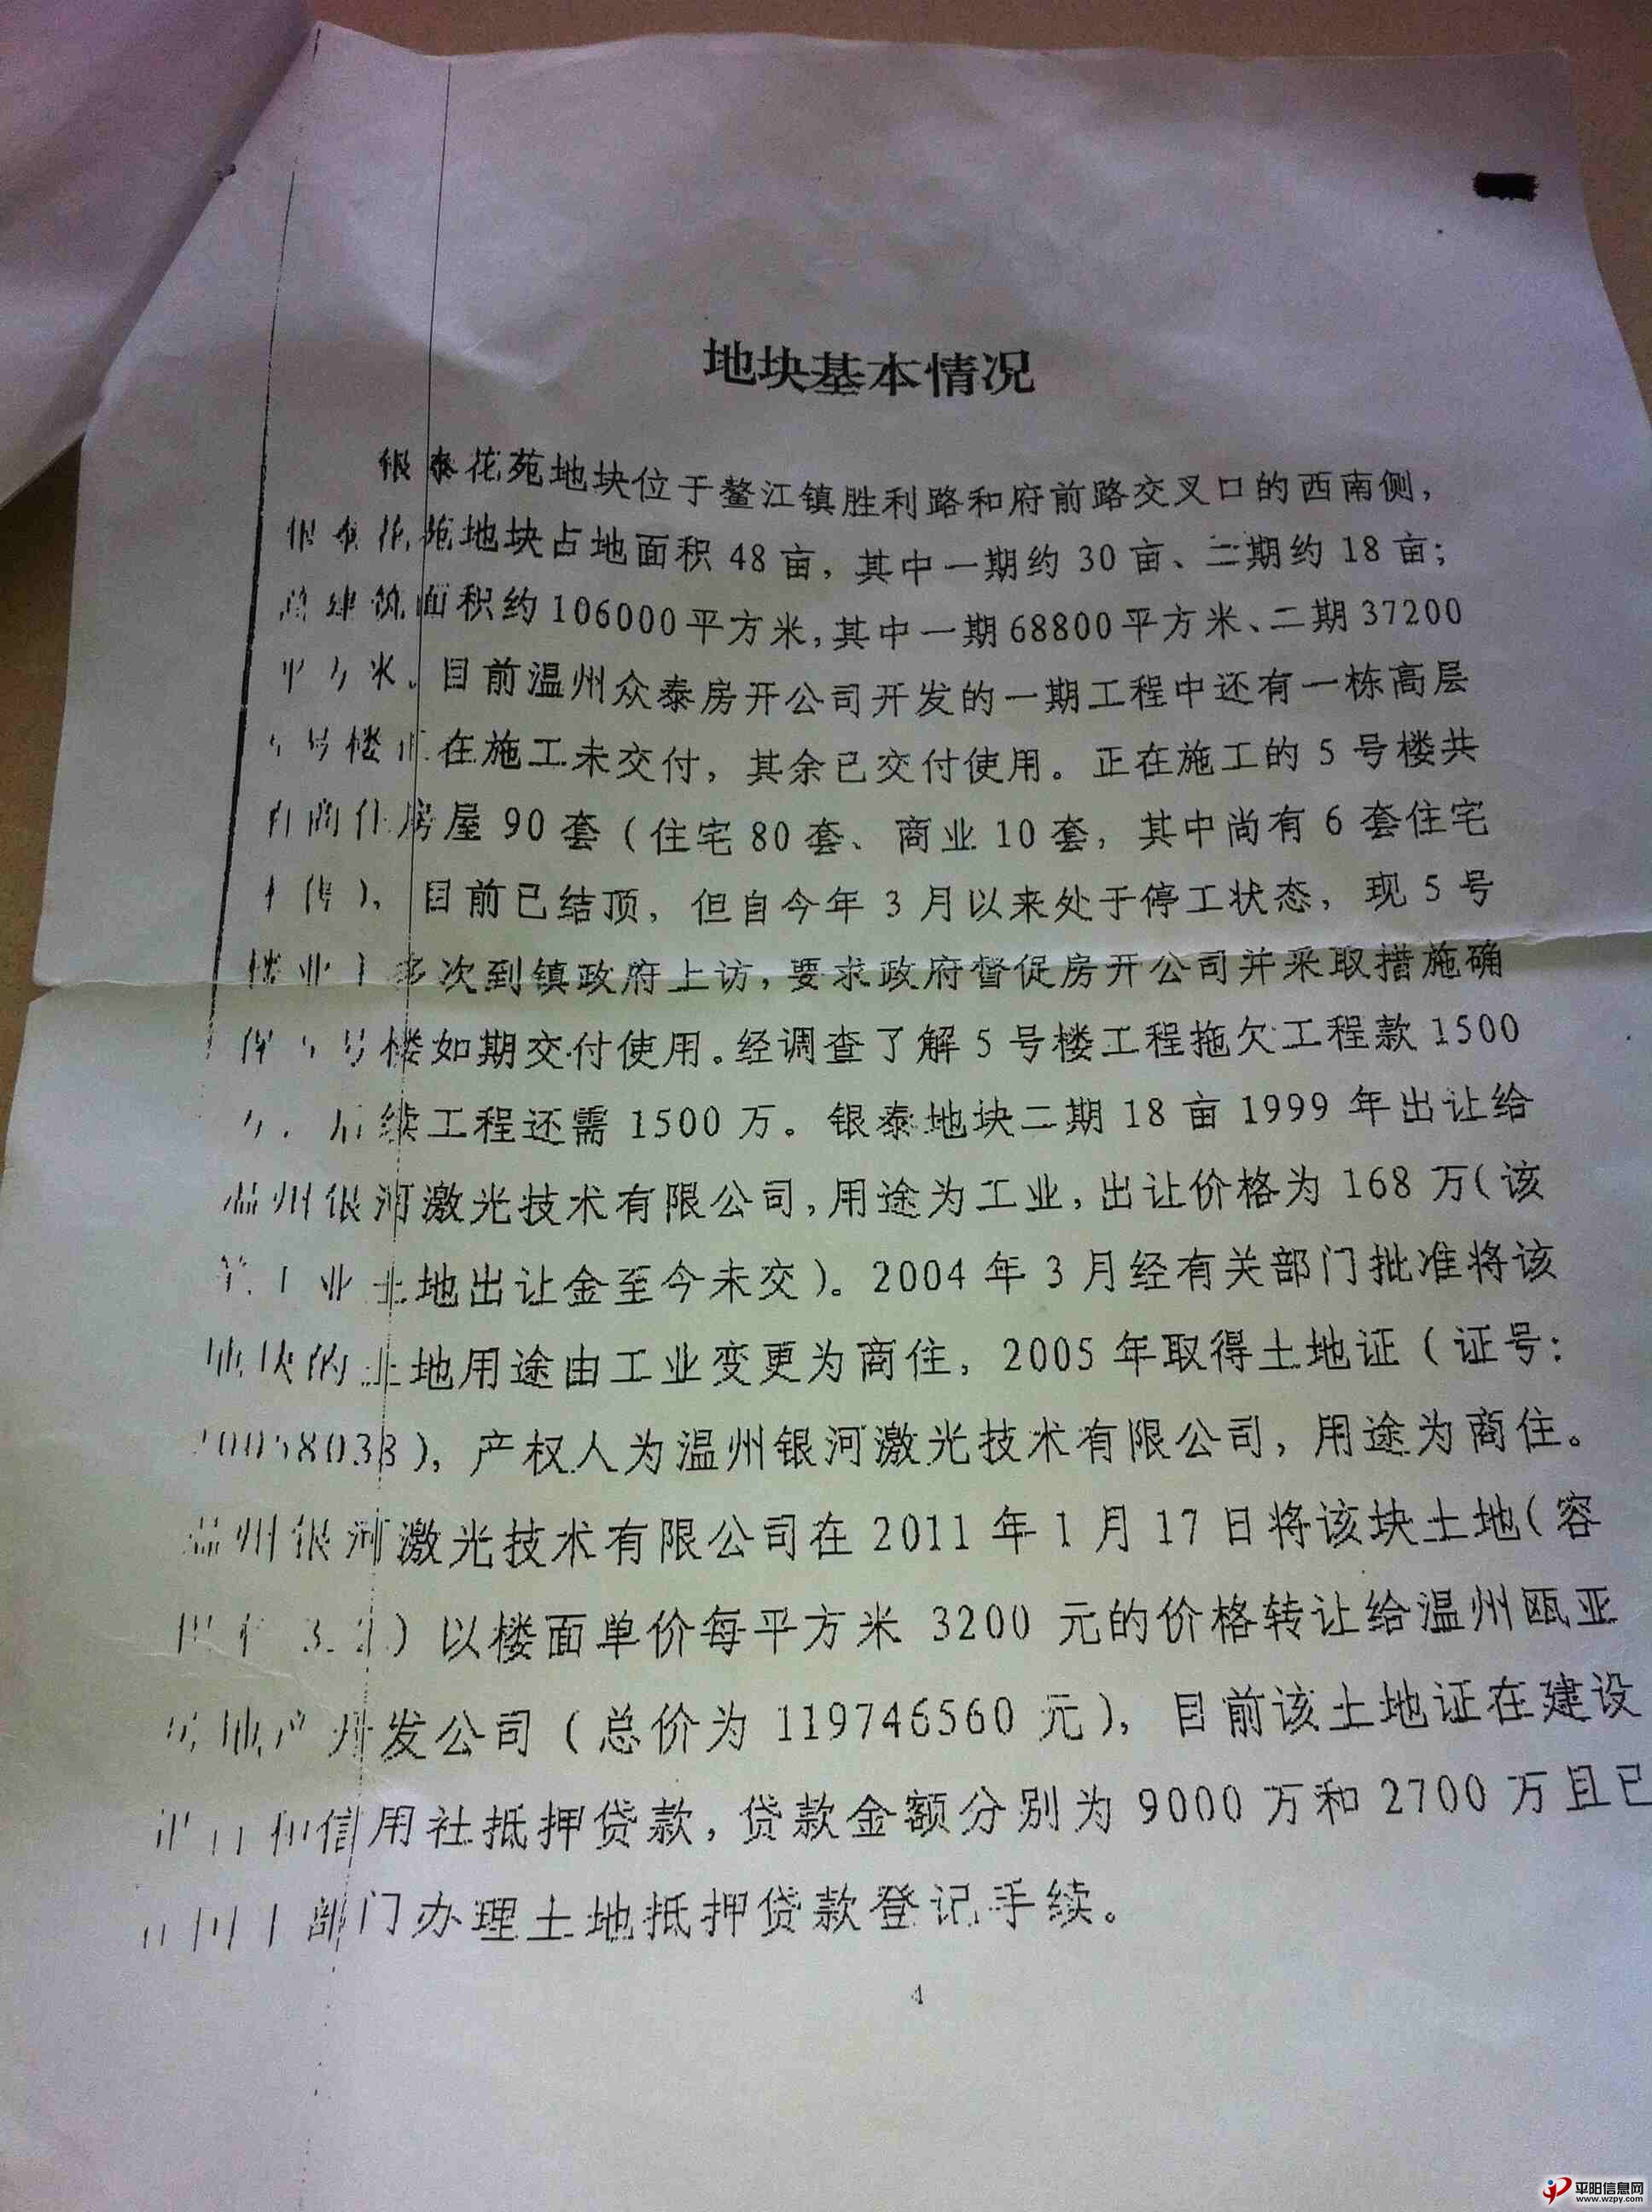 地块基本情况
银泰花苑地块位于鳌江镇胜利路和府前路交叉口的西南侧，
银泰花苑地块占地面积48亩，其中一期约30亩、二期约18亩；
总建筑面积约106000平方米，其中一期68800平方米、二期37200
平方米。目前温州众泰房开公司开发的一期工程中还有一栋高层
号楼正在施工未交付，其余已交付使用。正在施工的5号楼共
有商住房屋90套（住宅80套、商业10套，其中尚有6套住宅
），目前已结顶，但自今年3月以来处于停工状态，现5号
楼业主多次到镇政府上访，要求政府督促房开公司并采取措施确
保5号楼如期交付使用。经调查了解5号楼工程拖欠工程款1500
万，后续工程还需1500万。银泰地块二期18亩1999年出让给
温州银河激光技术有限公司，用途为工业，出让价格为168万（该
工业土地出让金至今未交）。2004年3月经有关部门批准将该
地块的土地用途由工业变更为商住，2005年取得土地证（证号：
），产权人为温州银河激光技术有限公司，用途为商住。
温州银河激光技术有限公司在2011年1月17日将该块土地（容
）以楼面单价每平方米3200元的价格转让给温州瓯亚
房地产开发公司（总价为119746560元），目前该土地证在建设
和信用社抵押贷款，贷款金额分别为9000万和2700万且已
部门办理土地抵押贷款登记手续。
4
平阳信息网
www.wzpy.com